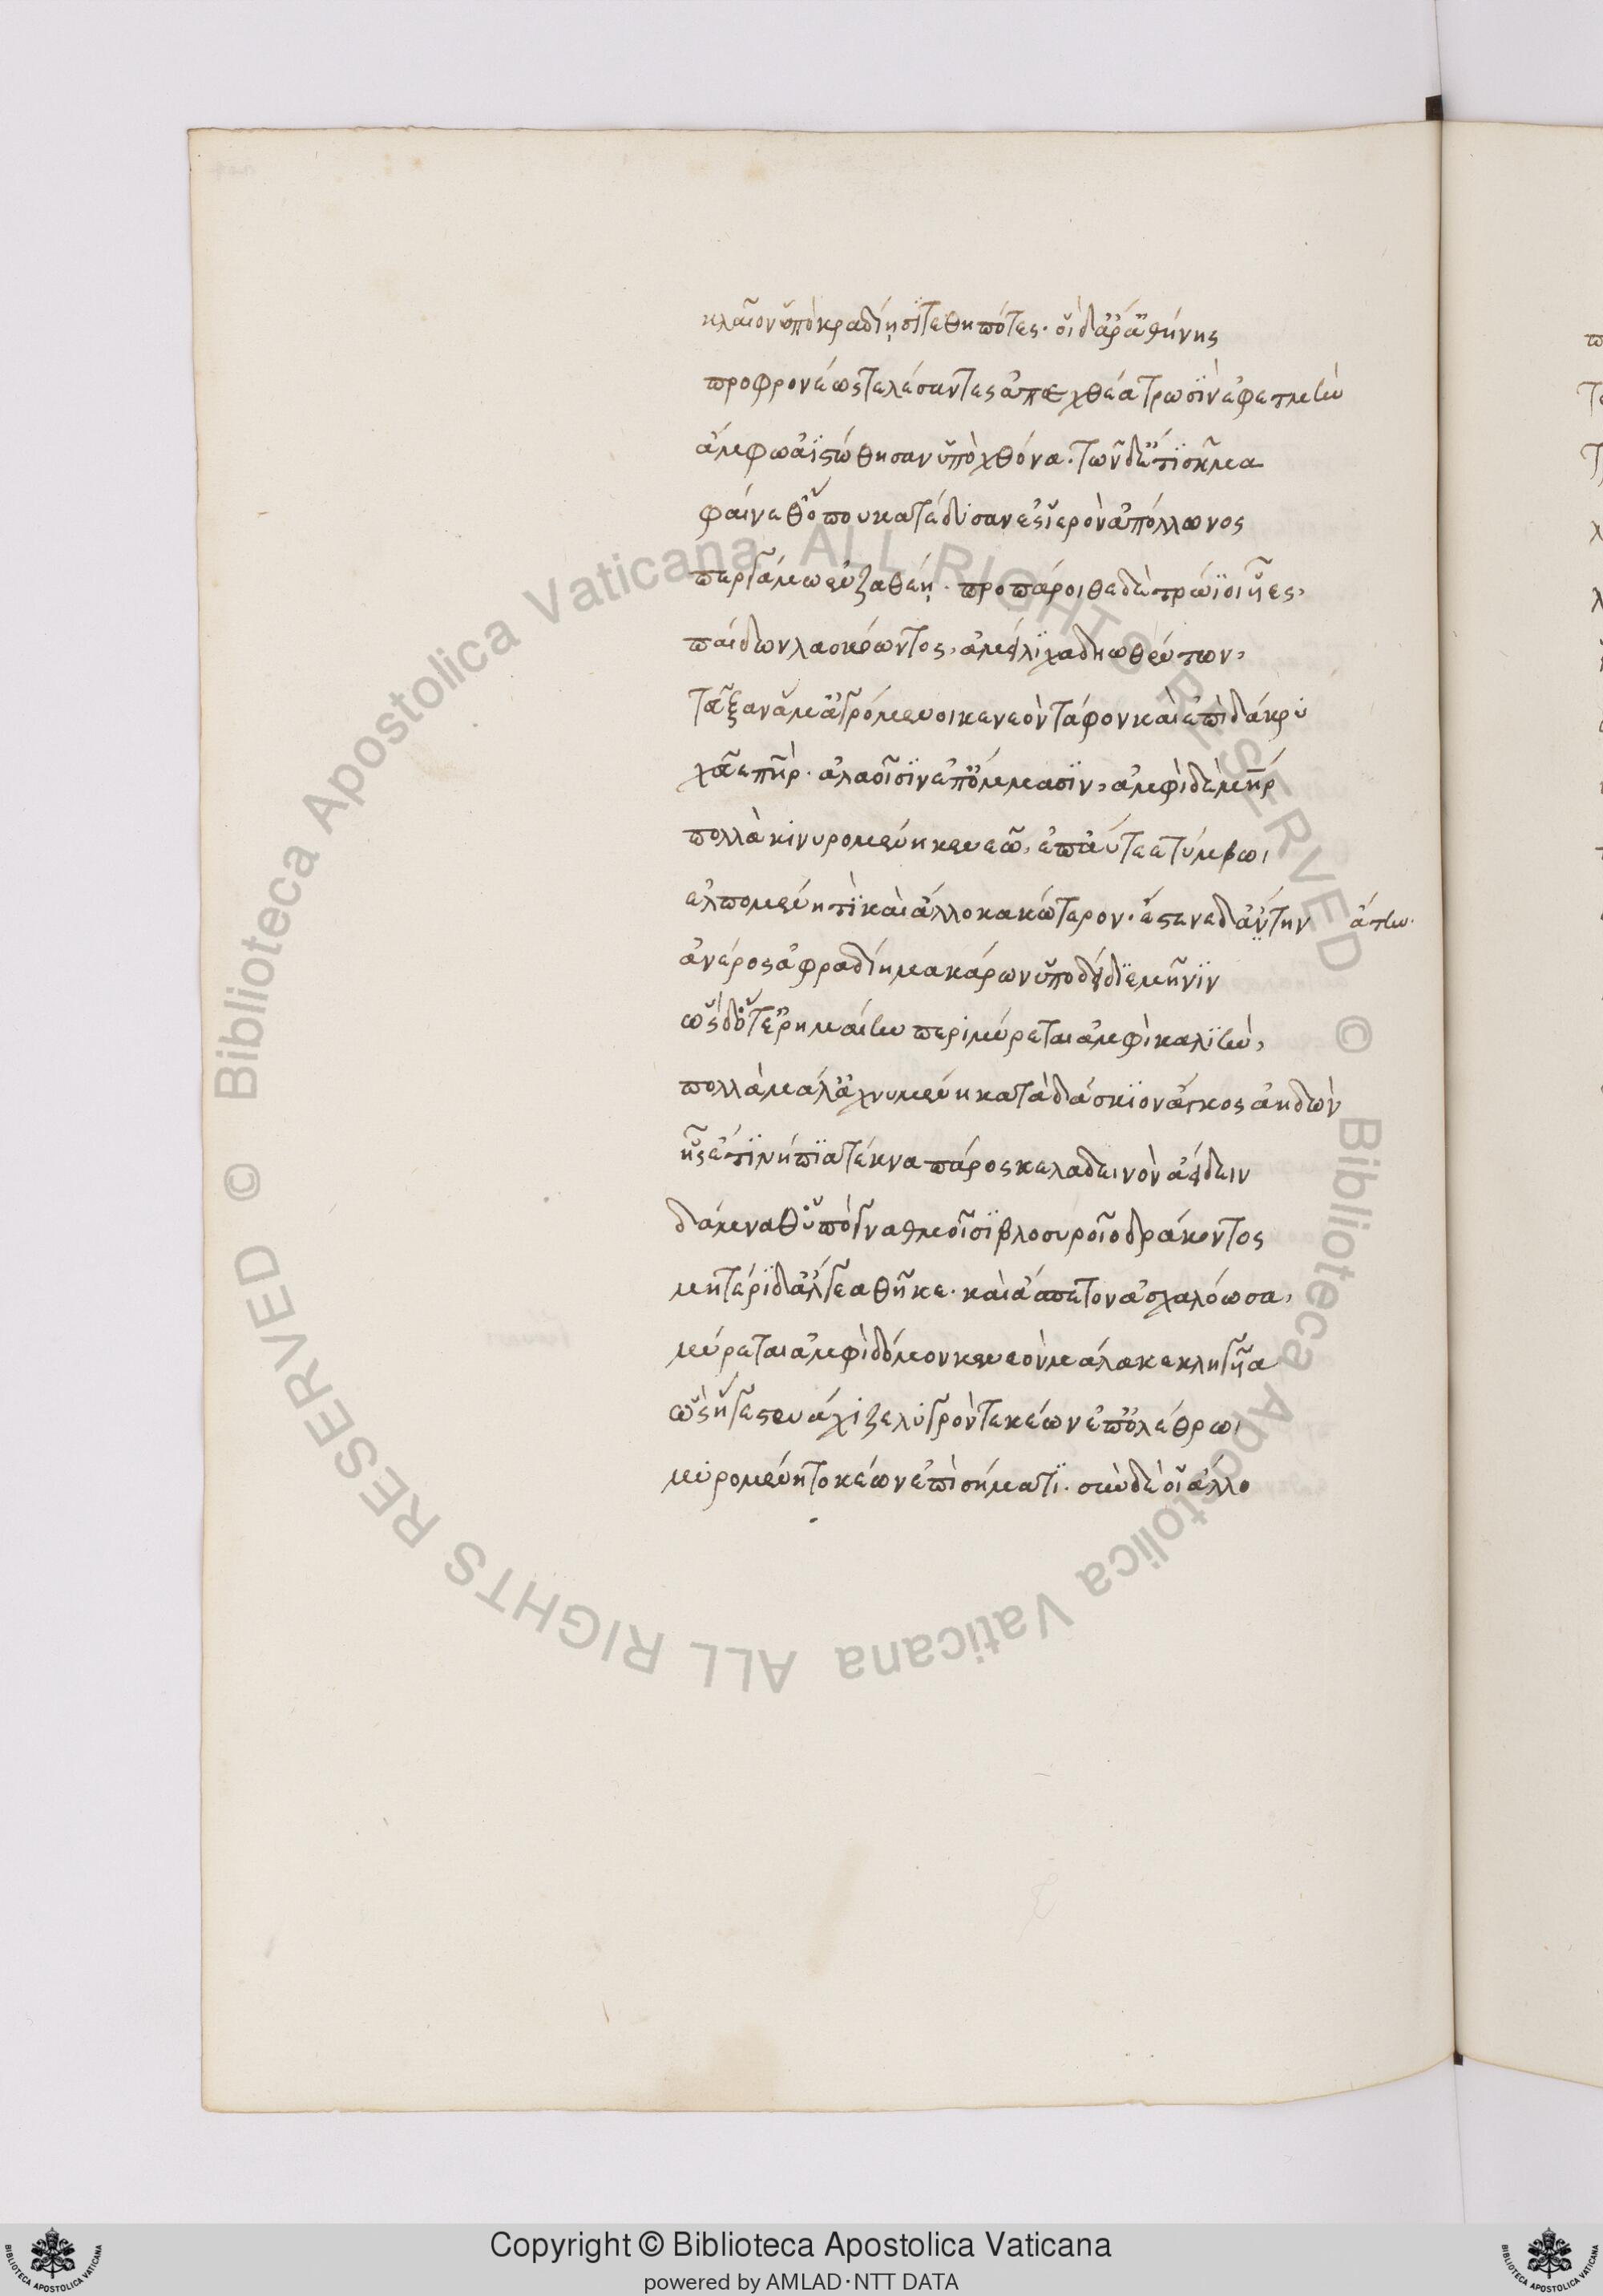 κλαῖον ὑπὸ κραδίῃσι τεθηπότες· οἱ δ' ἄρ' ἀθήνης
προφρονέως τελέσαντες ἀπεχθέα τρωσὶν ἐφετμὴν
ἄμφω ἀϊστώθησαν ὑπὸ χθόνα. τῶν δ' ἔτι σῆμα
φαίνεθ' ὅπου κατέδυσαν ἐς ἱερὸν ἀπόλλωνος
περγάμω ἐν ζαθέῃ. προπάροιθε δὲ τρώϊοι υἷες,
παίδων λαοκόωντος, ἀμείλιχα δῃωθέντων,
τεῦξαν ἅμ' ἀγρόμενοι κενεὸν τάφον καὶ ἐπὶ δάκρυ
χεῦε πῆρ. ἀλαοῖσιν ἐπ' ὄμμασιν, ἀμφὶ δὲ μῆρ
πολλὰ κινυρομένη κενεῶ, ἐπαύτεε τύμβωι
ἐλπομένη τὶ καὶ ἄλλο κακώτερον. ἔστενε δ' αὐτὴν ἄτην.
ἀνέρος ἀφραδίη μακάρων ὑποδείδιε μῆνιν
ὡς δ' ὅτ' ἐρημαίην περιμύρεται ἀμφὶ καλιὴν,
πολλὰ μάλ' ἀχνυμένη κατὰ δάσκιον ἄγκος ἀηδὼν
ἧς ἔτι νήπια τέκνα πάρος κελαδεινὸν ἀείδειν
δάμναθ' ὑπὸ γναθμοῖσι βλοσυροῖο δράκοντος
μητέρι δ' ἄλγεα θῆκε. καὶ ἄσπετον ἀσχαλόωσα,
μύρεται ἀμφὶ δόμον κενεὸν μάλα κεκληγῆα
ὡς ἥγε στενάχιζε λυγρὸν τεκέων ἐπ' ὀλέθρωι
μυρομένη τοκέων ἐπὶ σήματι. σὺν δέ οἱ ἄλλο
Copyright © Biblioteca Apostolica Vaticana
powered by AMLAD·NTT DATA